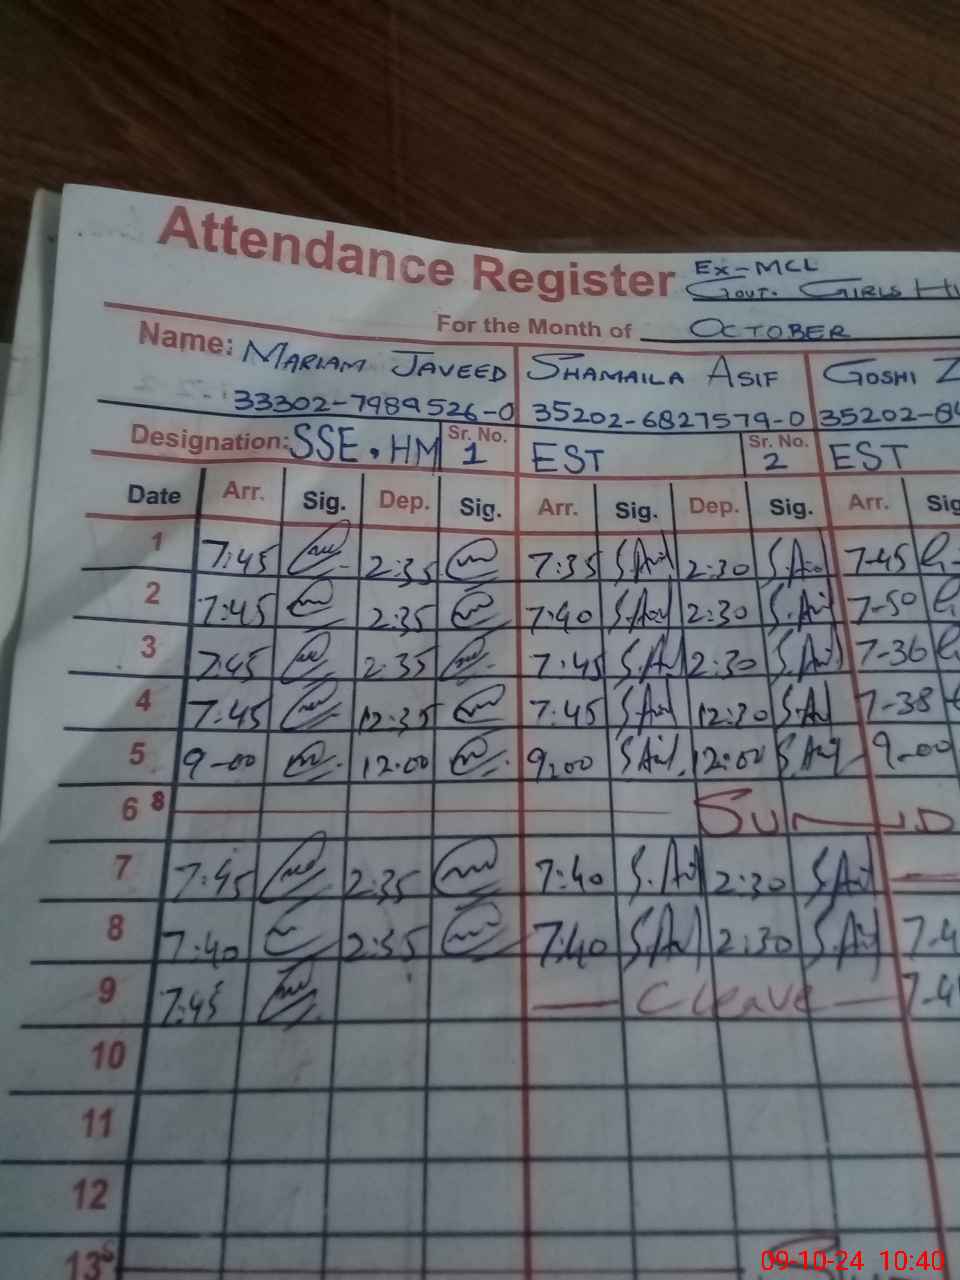 Attendance Register Ex-MCL
Govt. Girls
For the Month of October
Name: Mariam Javeed Shamaila Asif Goshi Z
33302-7989526-0 35202-6827579-0 35202-8
Designation: SSE. HM Sr. No. 1 EST Sr. No. 2 EST
Date Arr. Sig. Dep. Sig. Arr. Sig. Dep. Sig. Arr. Sig
1 7:45 2:35 7:35 2:30 7-45
2 7:45 2:35 7:40 2:30 7-50
3 7:45 2:35 7:45 2:30 7-36
4 7:45 12:35 7:45 12:30 7-38
5 9-00 12:00 9,00 12:00 9-00
6 8 SUND
7 7:45 2:35 7:40 2:30
8 7:40 2:35 7:40 2:30 7-4
9 7:45 C leave 7-4
10
11
12
13 S
09-10-24 10:40